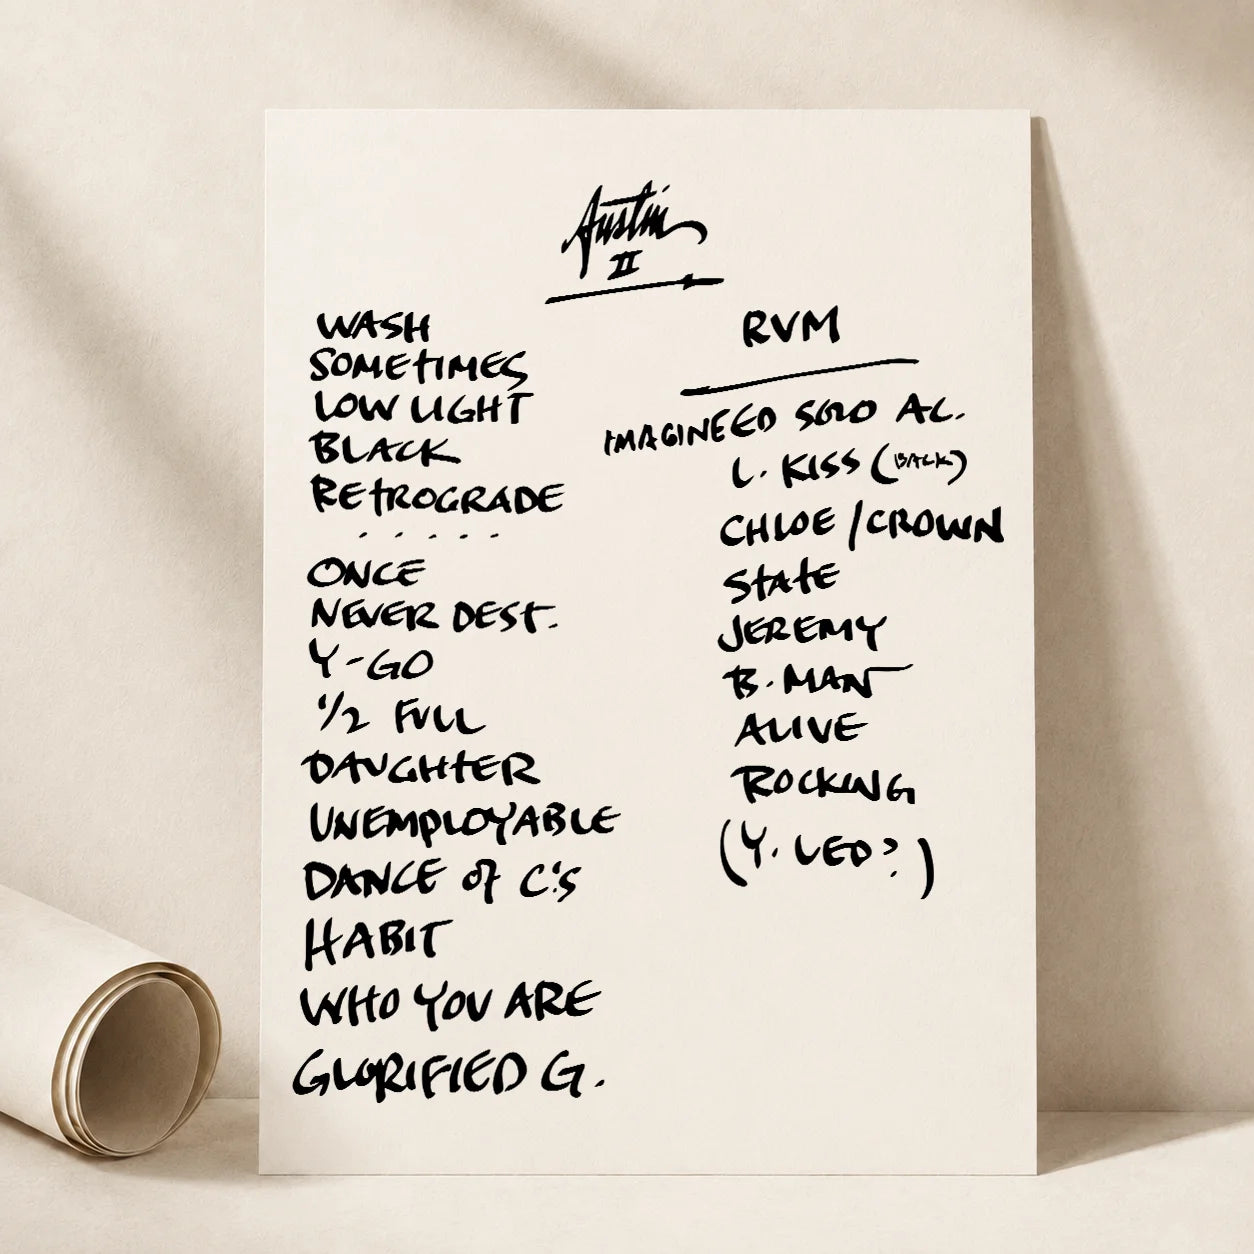 Austin
II
WASH
SOMETIMES
LOW LIGHT
BLACK
RETROGRADE
.....
ONCE
NEVER DEST.
Y-GO
1/2 FULL
DAUGHTER
UNEMPLOYABLE
DANCE of C's
HABIT
WHO YOU ARE
GLORIFIED G.
RVM
IMAGINEED SOLO AC.
L. KISS (BACK)
CHLOE / CROWN
STATE
JEREMY
B. MAN
ALIVE
ROCKING
(Y. LED?)